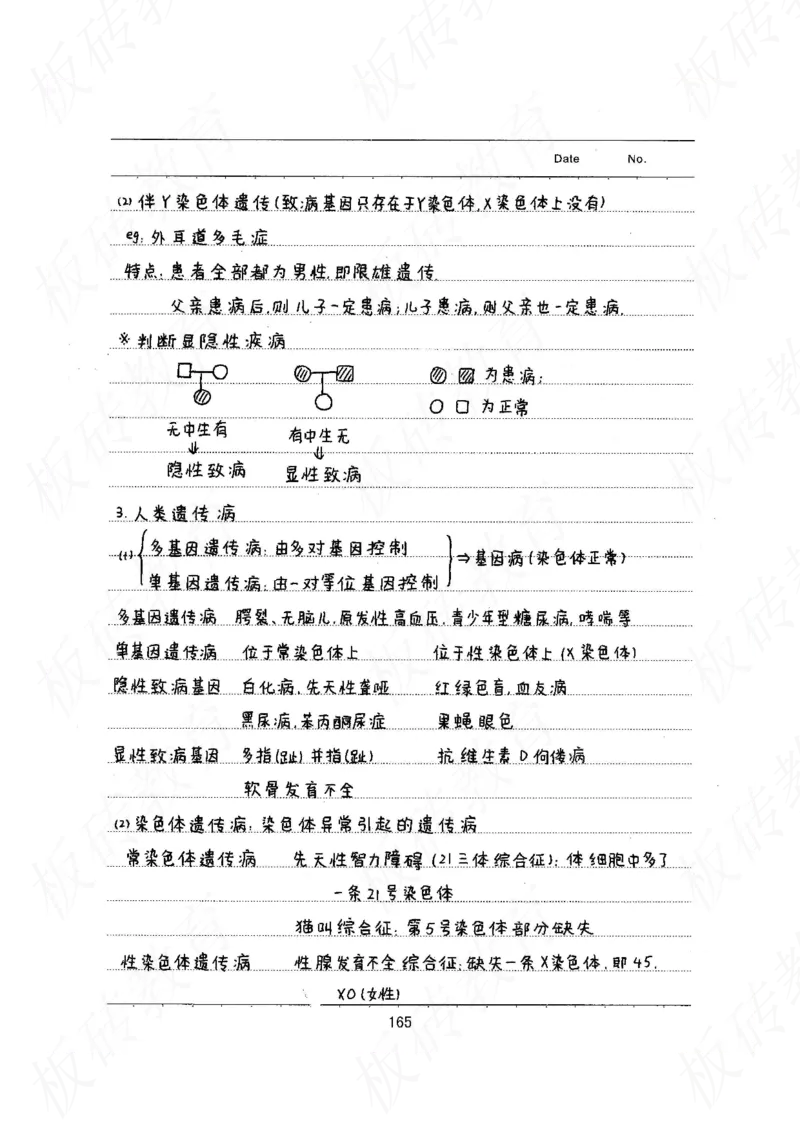 Date No.
(2) 伴Y染色体遗传(致病基因只存在于Y染色体,X染色体上没有)
eg: 外耳道多毛症
特点: 患者全部都为男性,即限雄遗传.
父亲患病后,则儿子一定患病;儿子患病,则父亲也一定患病.
※ 判断显隐性疾病
为患病;
为正常
无中生有 有中生无
⇓ ⇓
隐性致病 显性致病
3. 人类遗传病
(1) { 多基因遗传病: 由多对基因控制
单基因遗传病: 由一对等位基因控制 } ⇒ 基因病(染色体正常)
多基因遗传病 腭裂、无脑儿,原发性高血压,青少年型糖尿病,哮喘等
单基因遗传病 位于常染色体上 位于性染色体上(X染色体)
隐性致病基因 白化病,先天性聋哑 红绿色盲,血友病
黑尿病,苯丙酮尿症 果蝇眼色
显性致病基因 多指(趾) 并指(趾) 抗维生素D佝偻病
软骨发育不全
(2) 染色体遗传病: 染色体异常引起的遗传病
常染色体遗传病 先天性智力障碍(21三体综合征): 体细胞中多了
一条21号染色体
猫叫综合征: 第5号染色体部分缺失
性染色体遗传病 性腺发育不全综合征: 缺失一条X染色体,即45.
XO(女性)
165
板砖教育